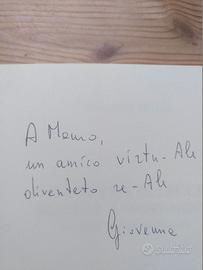 A Mauro,
un amico virtu-Ale
diventato re-Ale
Giovanna
subito.it